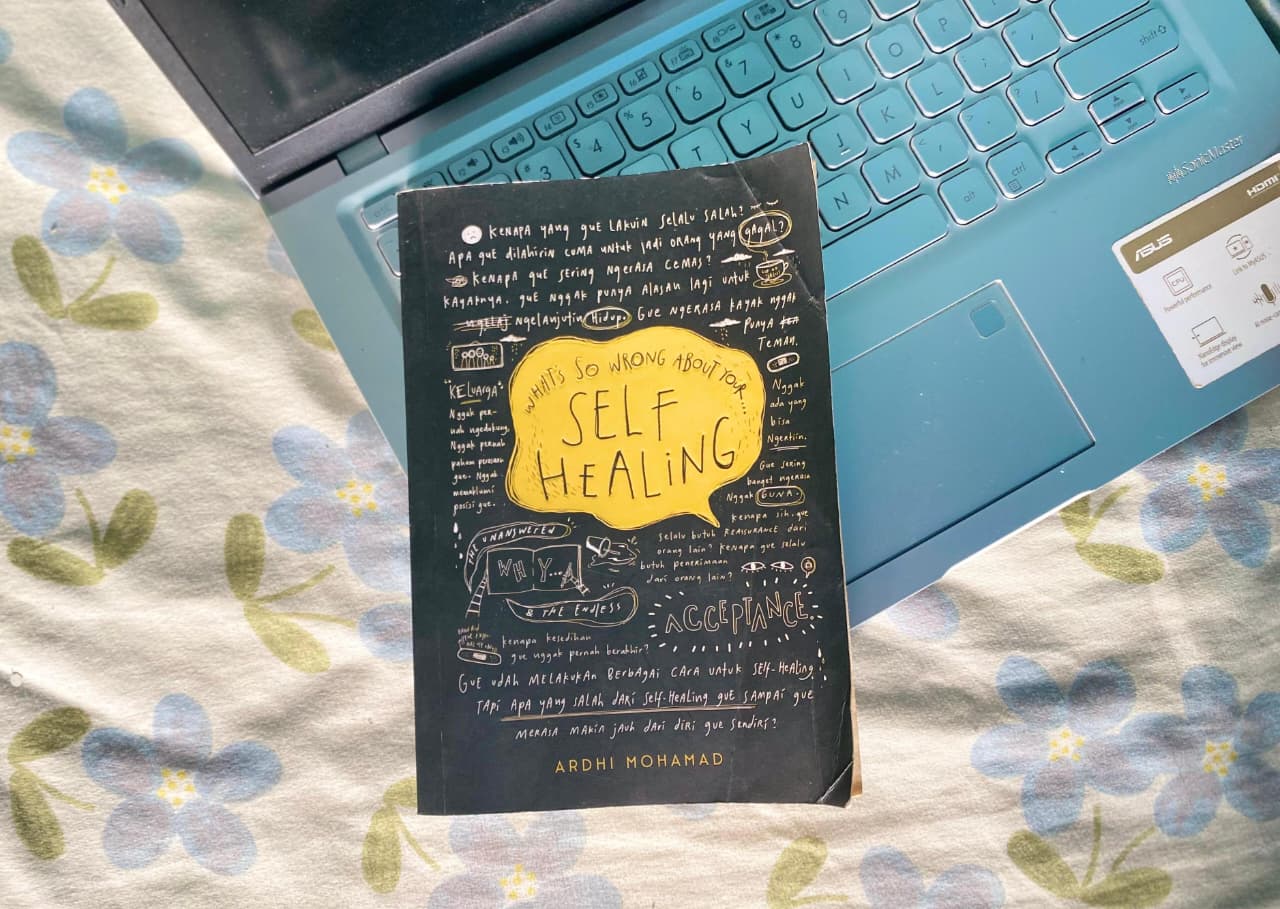 KENAPA YANG gUE LAKUIN SELALU SALAH?
APA gUE DILAHIRIN CUMA UNTUK JADI ORANG YANG gAgAL?
KENAPA gUE SERING NGERASA CEMAS?
KAYAKNYA, gUE NggAK PUNYA ALASAN LAGI UNTUK
NGELANJUTIN HIDUP. GUE NGERASA KAYAK NggAK
PUNYA
TEMAN.
"KELUARGA"
Nggak per-
nah ngedukung.
Nggak pernah
paham perasaan
gue. Nggak
memaklumi
posisi gue.
WHAT'S SO WRONG ABOUT YOUR...
SELF
HEALING
Nggak
ada yang
bisa
Ngertiin.
Gue sering
banget ngerasa
Nggak GUNA.
Kenapa sih, gue
selalu butuh REASSURANCE dari
orang lain? Kenapa gue selalu
butuh penerimaan
dari orang lain?
THE UNANSWERED
WHY...
& THE ENDLESS
ACCEPTANCE
kenapa kesedihan
gue nggak pernah berakhir?
GUE UDAH MELAKUKAN BERBAGAI CARA UNTUK SELF-HEALING
TAPI APA YANG SALAH DARI SELF-HEALING GUE SAMPAI GUE
MERASA MAKIN JAUH DARI DIRI GUE SENDIRI?
ARDHI MOHAMAD
9
* 8
& 7
^ 6
% 5
$ 4
3
O
P
I
U
Y
T
L
K
J
M
N
shift
alt
ctrl
SonicMaster
ASUS
HDMI
CPU
Powerful performance
Link to MyASUS
NanoEdge display
for immersive view